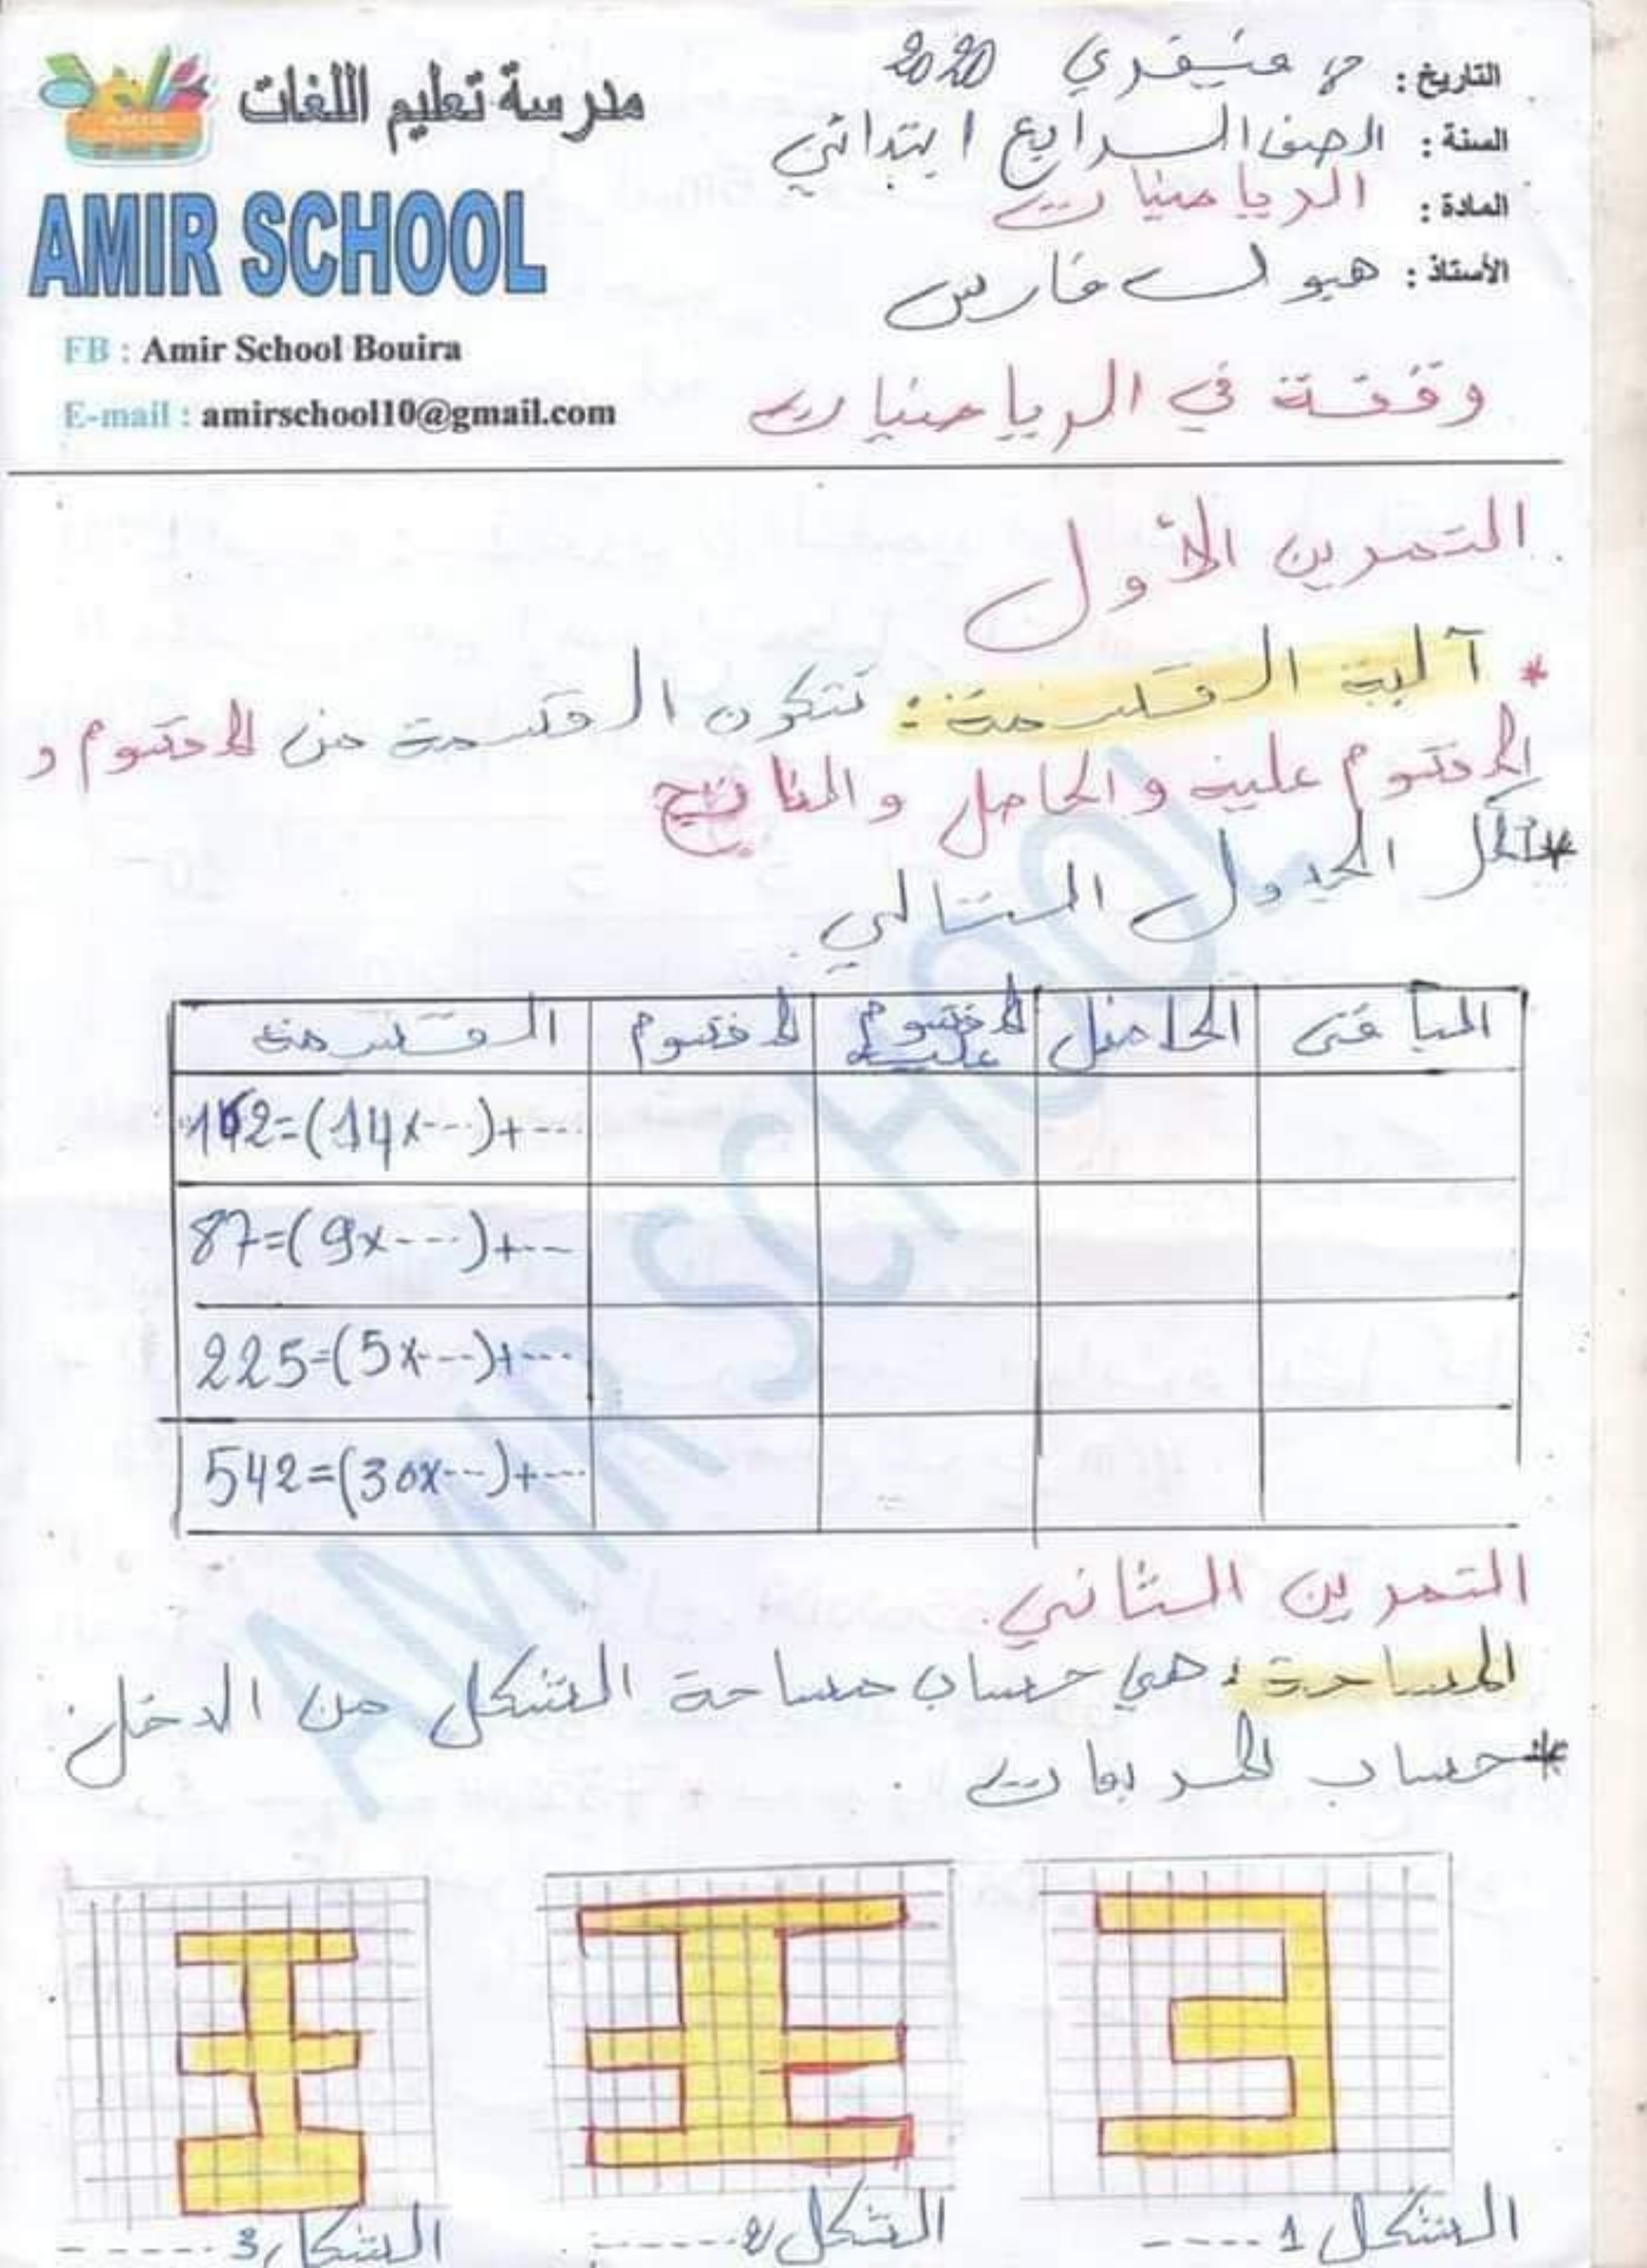 مدرسة تعليم اللغات
AMIR SCHOOL
AMIR SCHOOL
FB : Amir School Bouira
E-mail : amirschool10@gmail.com
التاريخ : فيفري 2020
السنة : الصف الرابع ابتدائي
المادة : الرياضيات
الأستاذ : فارس
وقفة في الرياضيات
التمرين الأول
* آلية القسمة : تتكون القسمة من المقسوم و
المقسوم عليه والحاصل والناتج
* الجدول التالي
القسمة المقسوم المقسوم عليه الحاصل الباقي
=(14x---)+---
87=(9x---)+---
225=(5x---)+---
542=(30x---)+---
التمرين الثاني
المساحة : هي حساب مساحة الشكل من الدخل
* حساب المربعات .
الشكل 1 ----
الشكل 2 ------
الشكل 3 ------
AMIR SCHOOL